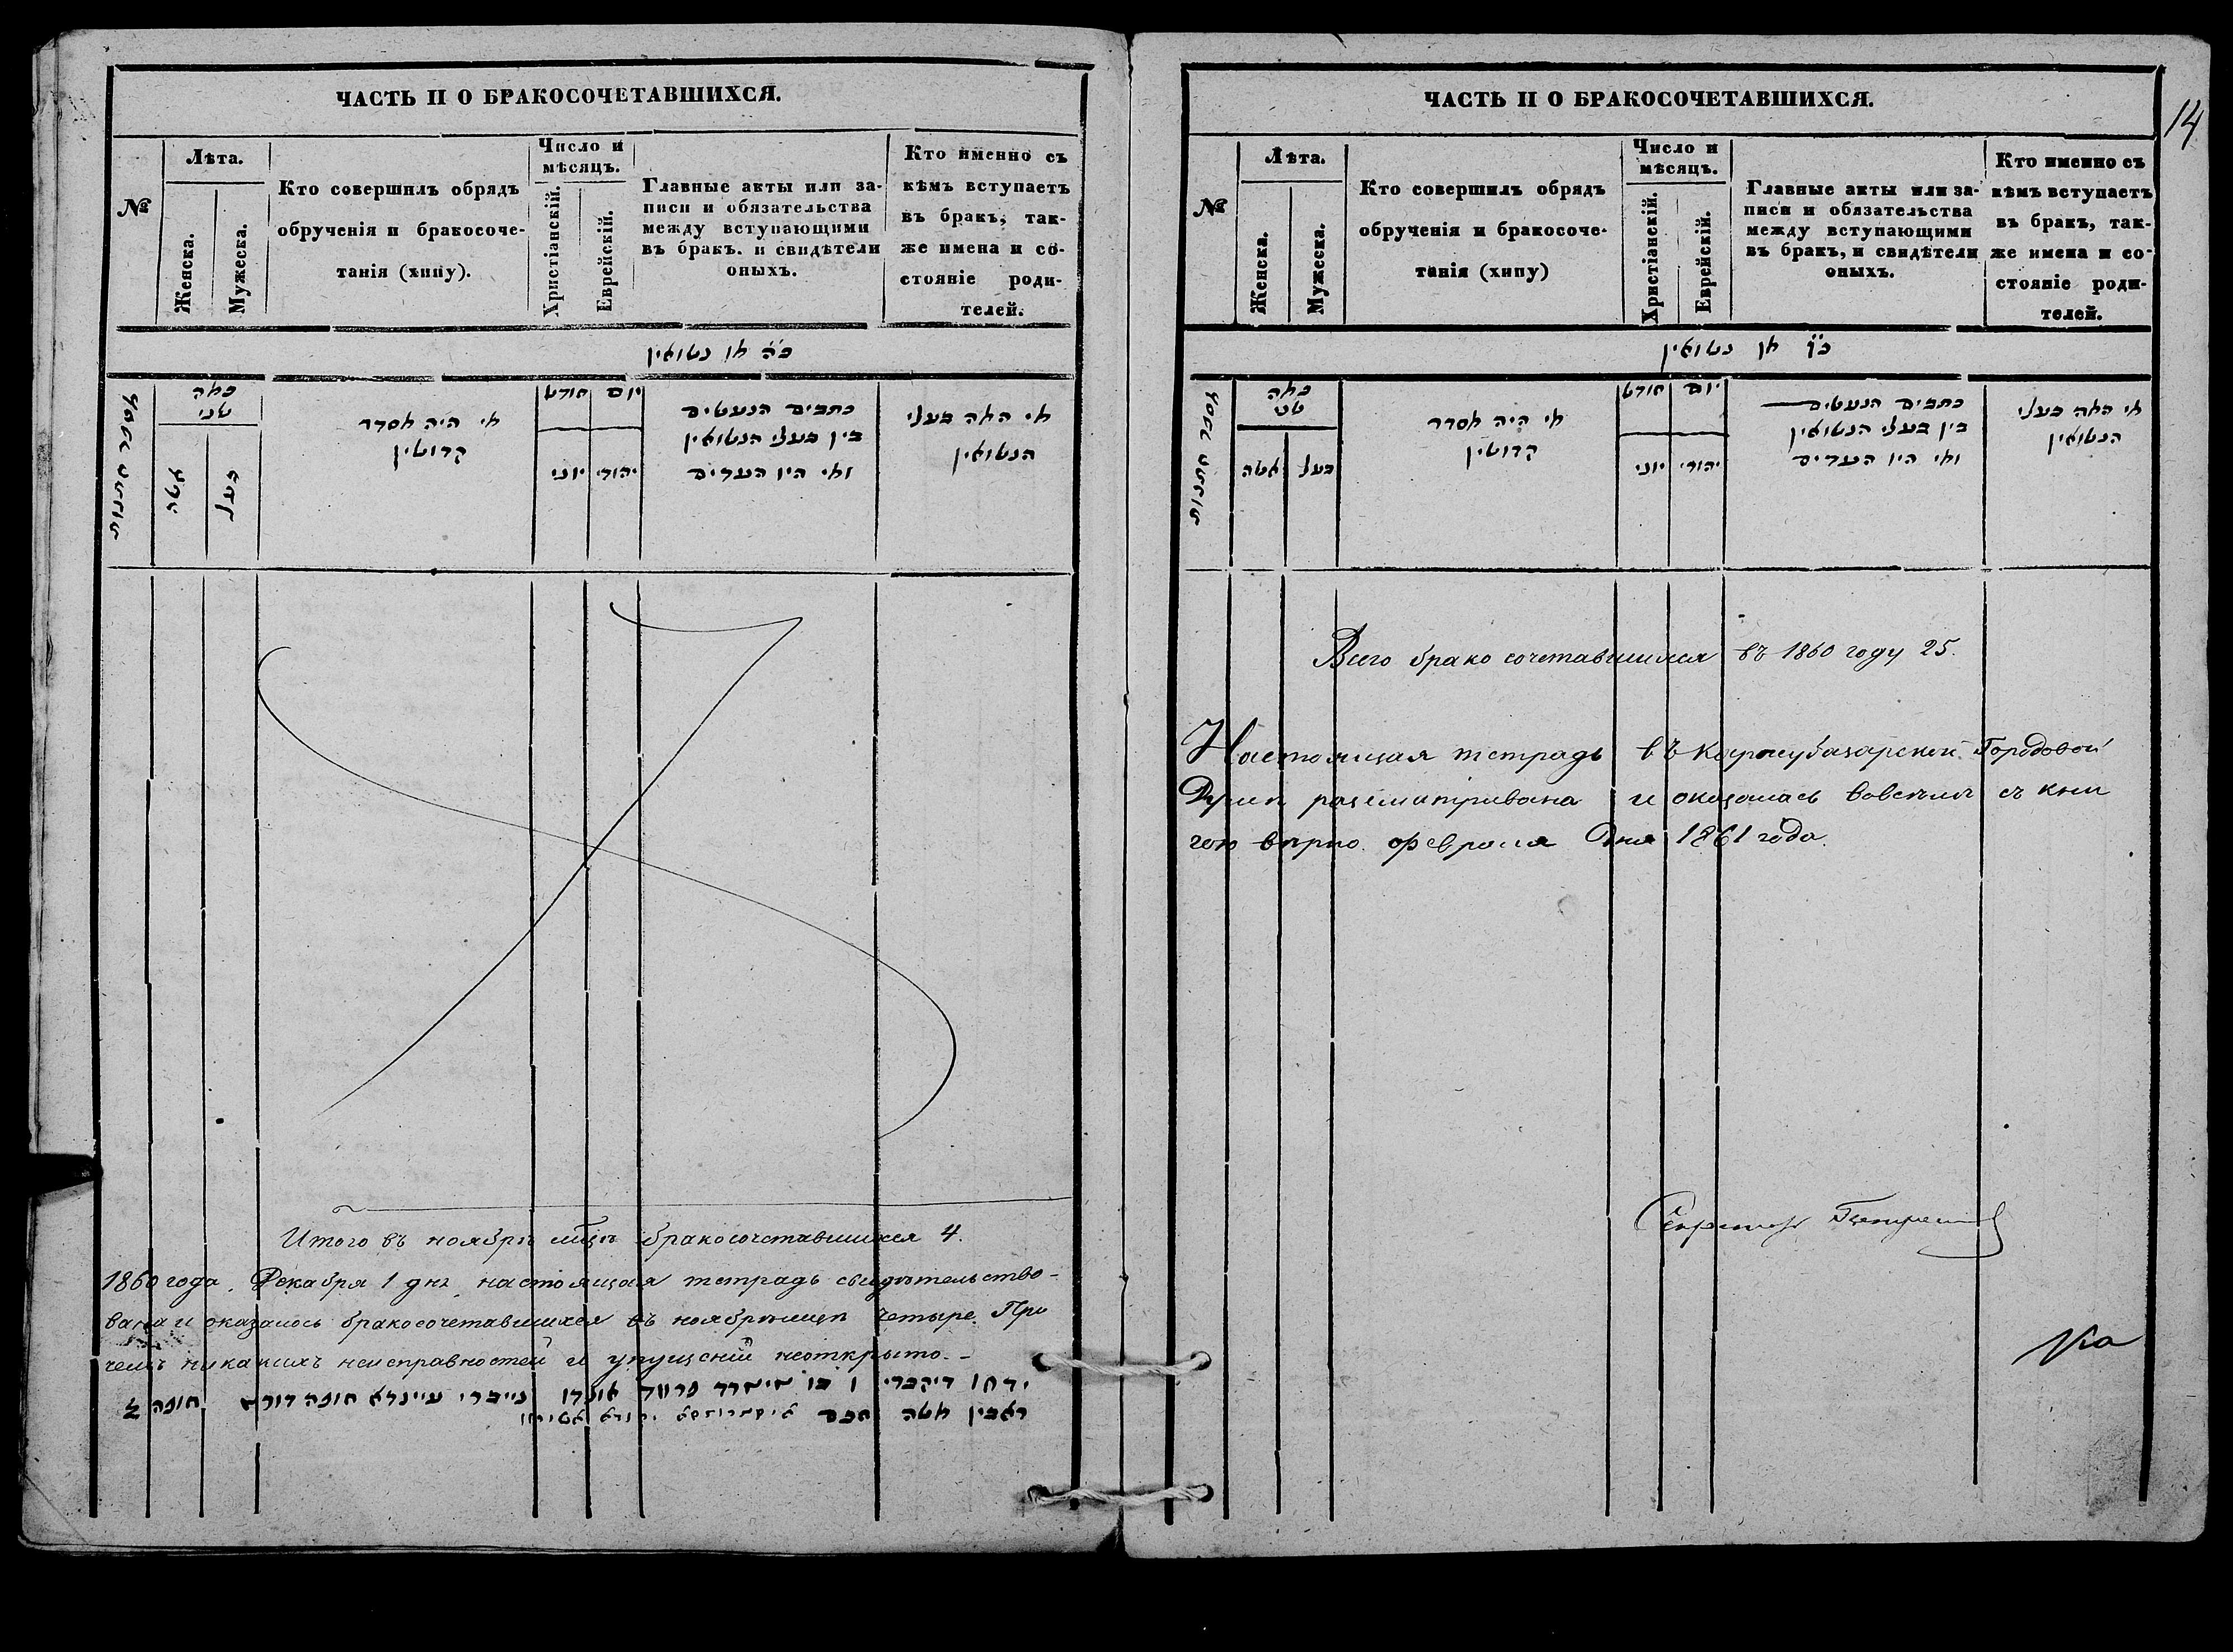 ЧАСТЬ II О БРАКОСОЧЕТАВШИХСЯ.
№
Лѣта.
Женска.
Мужеска.
Кто совершилъ обрядъ
обрученія и бракосоче-
танія (хипу).
Число и
мѣсяцъ.
Христіанскій.
Еврейскій.
Главные акты или за-
писи и обязательства
между вступающими
въ бракъ. и свидѣтели
оныхъ.
Кто именно съ
кѣмъ вступаетъ
въ бракъ, так-
же имена и со-
стояніе роди-
телей.
מן נשואין
מי היה מסדר
קדושין
יום חודש
יהודי יוני
כתבים הנעשים
בין בעלי הנשואין
ומי היו העדים
מי המה בעלי
הנשואין
Итого въ ноябрѣ мцѣ бракосочетавшихся 4.
1860 года. Декабря 1 дня настоящая тетрадь свидѣтельство-
вана и оказалось бракосочетавшихся въ ноябрѣ мцѣ четыре. При
чемъ никакихъ неисправностей и упущеній неоткрыто.-
ראבין משה חכם
ЧАСТЬ II О БРАКОСОЧЕТАВШИХСЯ.
14
№
Лѣта.
Женска.
Мужеска.
Кто совершилъ обрядъ
обрученія и бракосоче-
танія (хипу)
Число и
мѣсяцъ.
Христіанскій.
Еврейскій.
Главные акты или за-
писи и обязательства
между вступающими
въ бракъ, и свидѣтели
оныхъ.
Кто именно съ
кѣмъ вступаетъ
въ бракъ, так-
же имена и со-
стояніе роди-
телей.
מן נשואין
אשה בעל
מי היה מסדר
קדושין
יום חודש
יהודי יוני
כתבים הנעשים
בין בעלי הנשואין
ומי היו העדים
מי המה בעלי
הנשואין
Всего бракосочетавшихся въ 1860 году 25.
Настоящая тетрадь въ Карасубазарской Городовой
Думѣ разсматривана и оказалась вовсемъ съ кни
гою вѣрно. февраля дня 1861 года.
Секретарь